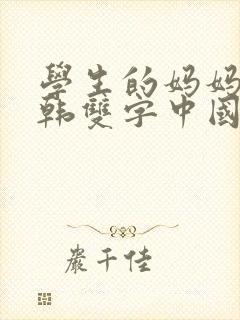 學生的妈妈
韩雙字中國
嚴千佳